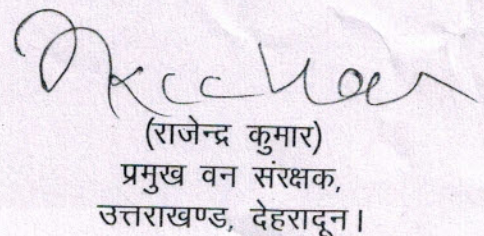 (राजेन्द्र कुमार)
प्रमुख वन संरक्षक,
उत्तराखण्ड, देहरादून।